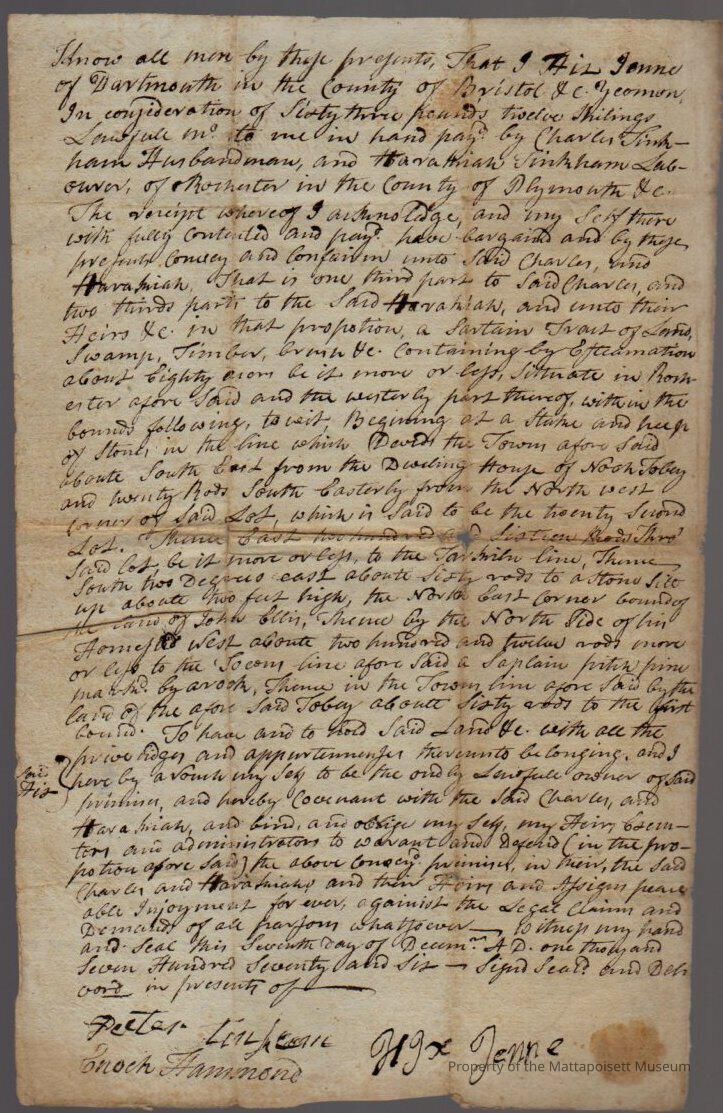 Know all men by these presents, That I Hix Jenne
of Dartmouth in the County of Bristol &c. Yeomon,
In consideration of Sixty three pounds twelve Shilings
Lawfull mo. to me in hand payd. by Charles Tink-
ham Husbandman, and Harashiah Tinkham Lab-
ourer, of Rochester in the County of Plymouth &c.
The receipt whereof I acknolidge, and my Self there
with fully Contented and payd. have bargaind and by these
presents Convey and Confairm unto Said Charles, and
Harashiah, That is one third part to Said Charles, and
two thirds parts to the Said Harashiah, and unto their
Heirs &c. in that propotion, a Sartain Tract of Land,
Swamp, Timber, brush &c. Containing by Esteamation
about Eighty acors be it more or less, Situate in Roch-
ester afore Said and the westerly part thereof, with in the
bounds following, to wit, Begining at a Stake and heep
of Stones in the line which Devids the Towns afore Said
aboute South East from the Dweling House of Noah Tobey
and twenty Rods South Easterly from the North west
corner of Said Lot, which is Said to be the twenty Second
Lot. Thence East two hundred and Sixteen Rods Thro'
Said lot be it more or less, to the Tarkiln line, Thence
South two Degrees east aboute Sixty rods to a Stone Sett
up aboute two feet high, the North East Corner bound of
the land of John Ellis, Thence by the North Side of his
Homested West aboute two hundred and twelve rods more
or less to the Towns line afore Said a Saplain pitch pine
markd. by a rock, Thence in the Towns line afore Said by the
land of the afore Said Tobey aboute Sixty rods to the first
bound. To have and to hold Said Land &c. with all the
priveledges and appurtennenses thereunto belonging. and I
Said Hix
here by avouch my Self to be the only Lawfull owner of Said
primises, and hereby Covenant with the Said Charles, and
Harashiah, and bind, and oblige my Self, my Heirs, Execu-
tors and administrators to warant and Defend (in the pro-
potion afore Said) the above Conveyd. primises, in their, the Said
Charles and Harashiahs and their Heirs and Assigns peace-
able Injoyment for ever, against the Legal Claims and
Demands of all parsons whatsoever — Witness my hand
and Seal this Seventh Day of Decemr. A D. one thousand
Seven Hundred Seventy and Six — Signd Seald and Deli
verd in presents of
Peeter
Enoch Hammond
Hix Jenne
Property of the Mattapoisett Museum